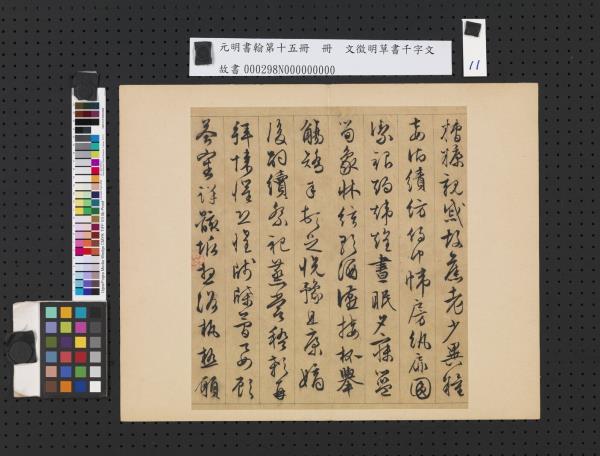 元明書翰第十五冊 冊 文徵明草書千字文
故書000298N000000000
11
糟糠親戚故舊老少異糧
妾御績紡侍巾帷房紈扇圓
潔銀燭煒煌晝眠夕寐藍
筍象牀絃歌酒讌接杯舉
觴矯手頓足悅豫且康嫡
後嗣續祭祀蒸嘗稽顙再
拜悚懼恐惶牋牒簡要顧
答審詳骸垢想浴執熱願